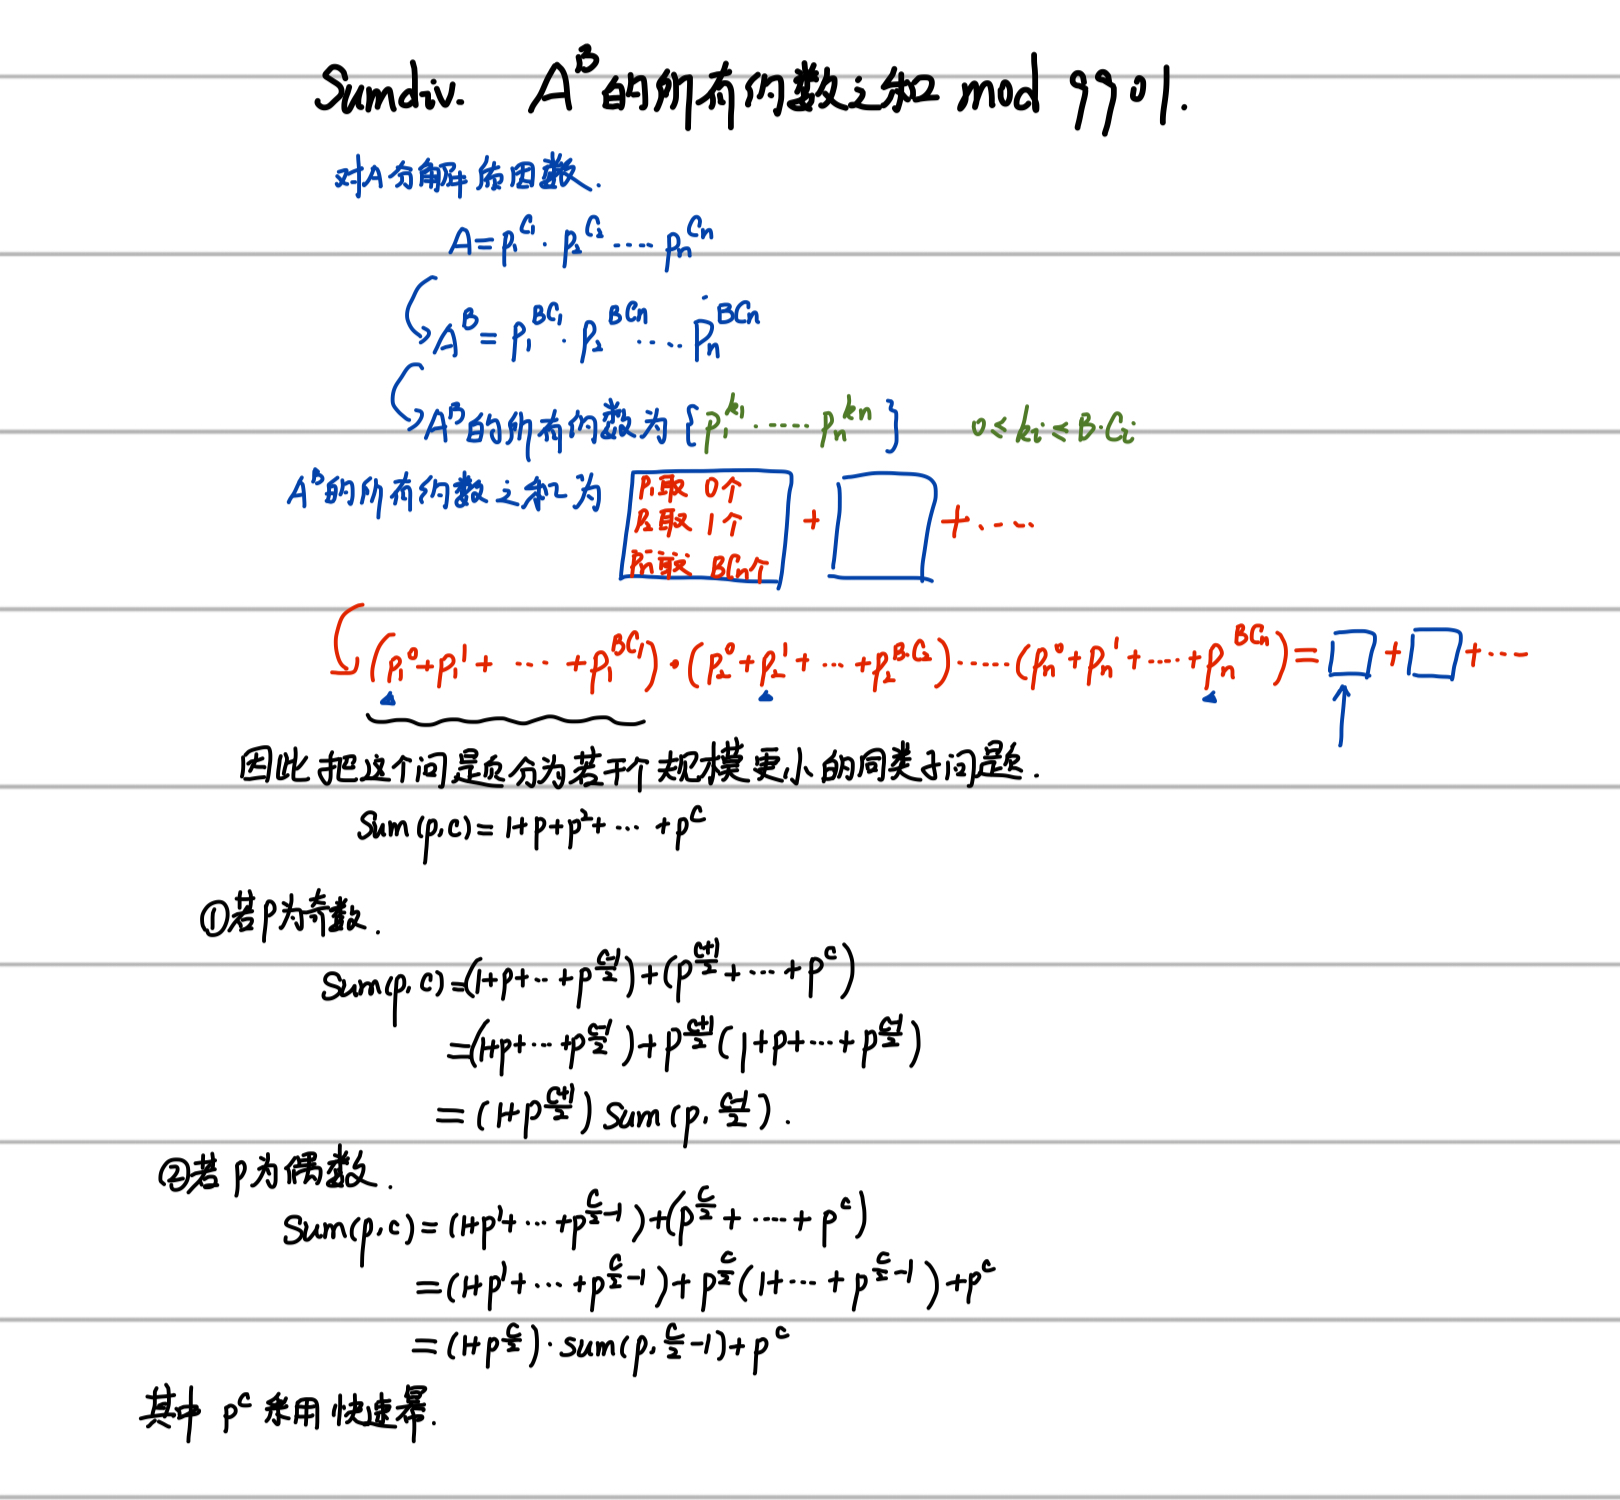 Sumdiv. A^B的所有约数之和 mod 9901.
对A分解质因数.
A=p₁^C₁·p₂^C₂·····pₙ^Cₙ
A^B=p₁^BC₁·p₂^BCₙ·····pₙ^BCₙ
A^B的所有约数为{p₁^k₁·····pₙ^kₙ} 0≤kᵢ≤B·Cᵢ
A^B的所有约数之和为
p₁取 0个
p₂取 1个
pₙ取 BCₙ个
+ □ +·····
(p₁^0+p₁^1+ ··· +p₁^BC₁)·(p₂^0+p₂^1+···+p₂^B·C₂)·····(pₙ^0+pₙ^1+····+pₙ^BCₙ)=□+□+···
因此把这个问题分为若干个规模更小的同类子问题.
Sum(p,c)=1+p+p²+ ··· +p^c
①若p为奇数.
Sum(p,c)=(1+p+···+p^((c-1)/2))+(p^((c+1)/2)+···+p^c)
=(1+p+···+p^((c-1)/2))+p^((c+1)/2)(1+p+···+p^((c-1)/2))
=(1+p^((c+1)/2))Sum(p,(c-1)/2).
②若p为偶数.
Sum(p,c)=(1+p^1+···+p^(c/2-1))+(p^(c/2)+····+p^c)
=(1+p^1+···+p^(c/2-1))+p^(c/2)(1+···+p^(c/2-1))+p^c
=(1+p^(c/2))·sum(p,c/2-1)+p^c
其中 p^c 采用快速幂.